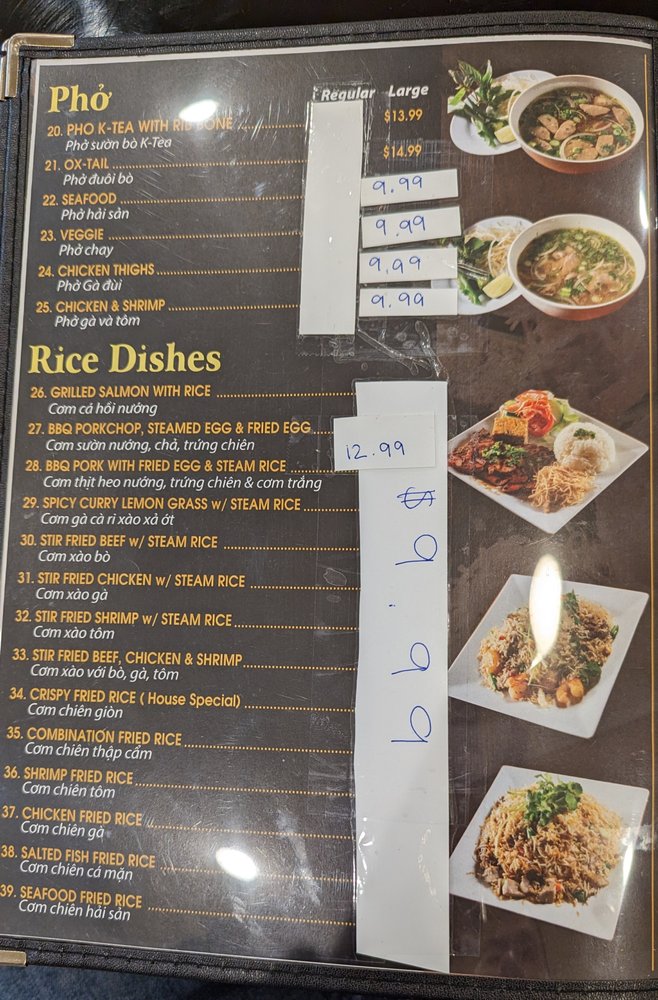 Phở
Regular Large
20. PHO K-TEA WITH RIB BONE $13.99
Phở sườn bò K-Tea
21. OX-TAIL $14.99
Phở đuôi bò
22. SEAFOOD 9.99
Phở hải sản
23. VEGGIE 9.99
Phở chay
24. CHICKEN THIGHS 9.99
Phở Gà đùi
25. CHICKEN & SHRIMP 9.99
Phở gà và tôm
Rice Dishes
26. GRILLED SALMON WITH RICE
Cơm cá hồi nướng
27. BBQ PORKCHOP, STEAMED EGG & FRIED EGG 12.99
Cơm sườn nướng, chả, trứng chiên
28. BBQ PORK WITH FRIED EGG & STEAM RICE
Cơm thịt heo nướng, trứng chiên & cơm trắng
29. SPICY CURRY LEMON GRASS w/ STEAM RICE
Cơm gà cà ri xào xả ớt
$9.99
30. STIR FRIED BEEF w/ STEAM RICE
Cơm xào bò
31. STIR FRIED CHICKEN w/ STEAM RICE
Cơm xào gà
32. STIR FRIED SHRIMP w/ STEAM RICE
Cơm xào tôm
33. STIR FRIED BEEF, CHICKEN & SHRIMP
Cơm xào với bò, gà, tôm
34. CRISPY FRIED RICE ( House Special)
Cơm chiên giòn
35. COMBINATION FRIED RICE
Cơm chiên thập cẩm
36. SHRIMP FRIED RICE
Cơm chiên tôm
37. CHICKEN FRIED RICE
Cơm chiên gà
38. SALTED FISH FRIED RICE
Cơm chiên cá mặn
39. SEAFOOD FRIED RICE
Cơm chiên hải sản